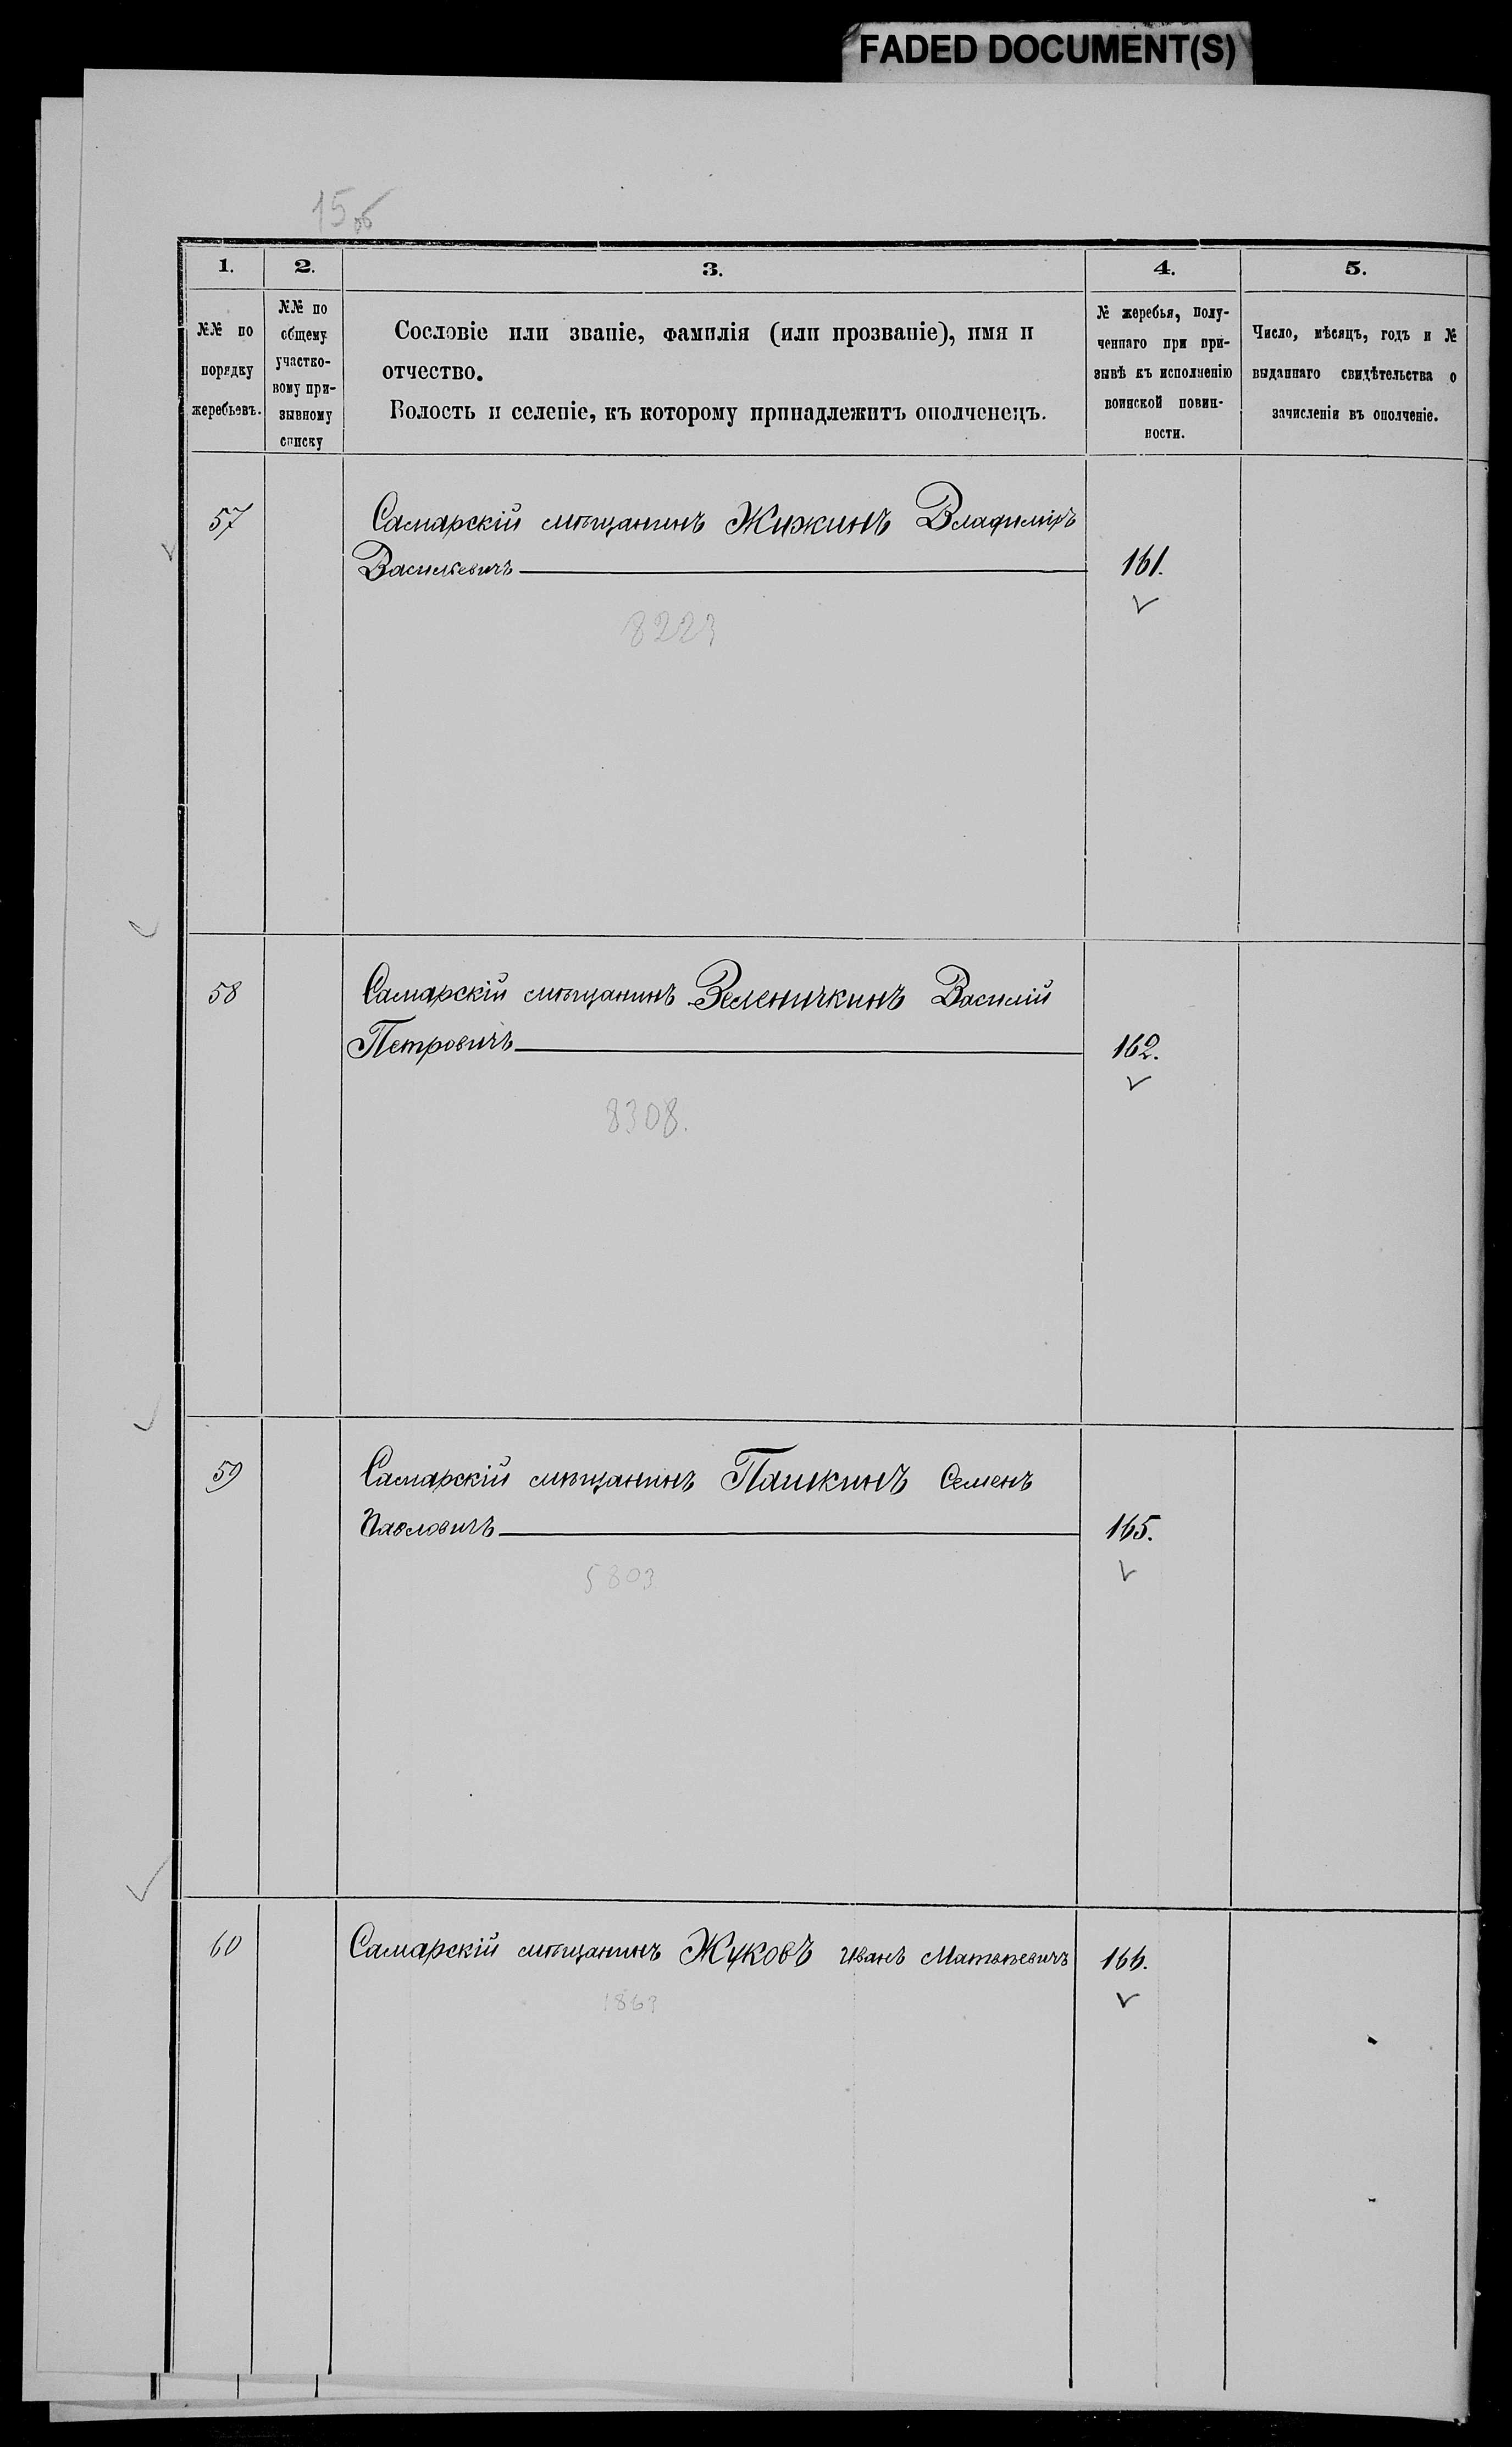 FADED DOCUMENT(S)
15 об
1.
2.
3.
4.
5.
№№ по
порядку
жеребьевъ.
№№ по
общему
участко-
вому при-
зывному
списку
Сословіе или званіе, фамилія (или прозваніе), имя и
отчество.
Волость и селеніе, къ которому принадлежитъ ополченецъ.
№ жеребья, полу-
ченнаго при при-
зывѣ къ исполненію
воинской повин-
ности.
Число, мѣсяцъ, годъ и №
выданнаго свидѣтельства о
зачисленіи въ ополченіе.
57
Самарскій мѣщанинъ Жижинъ Владиміръ
Васильевичъ
161.
8223
58
Самарскій мѣщанинъ Зеленичкинъ Василій
Петровичъ
162.
8308.
59
Самарскій мѣщанинъ Пашкинъ Семенъ
Павловичъ
165.
5803
60
Самарскій мѣщанинъ Жуковъ Иванъ Матвѣевичъ
166.
1863